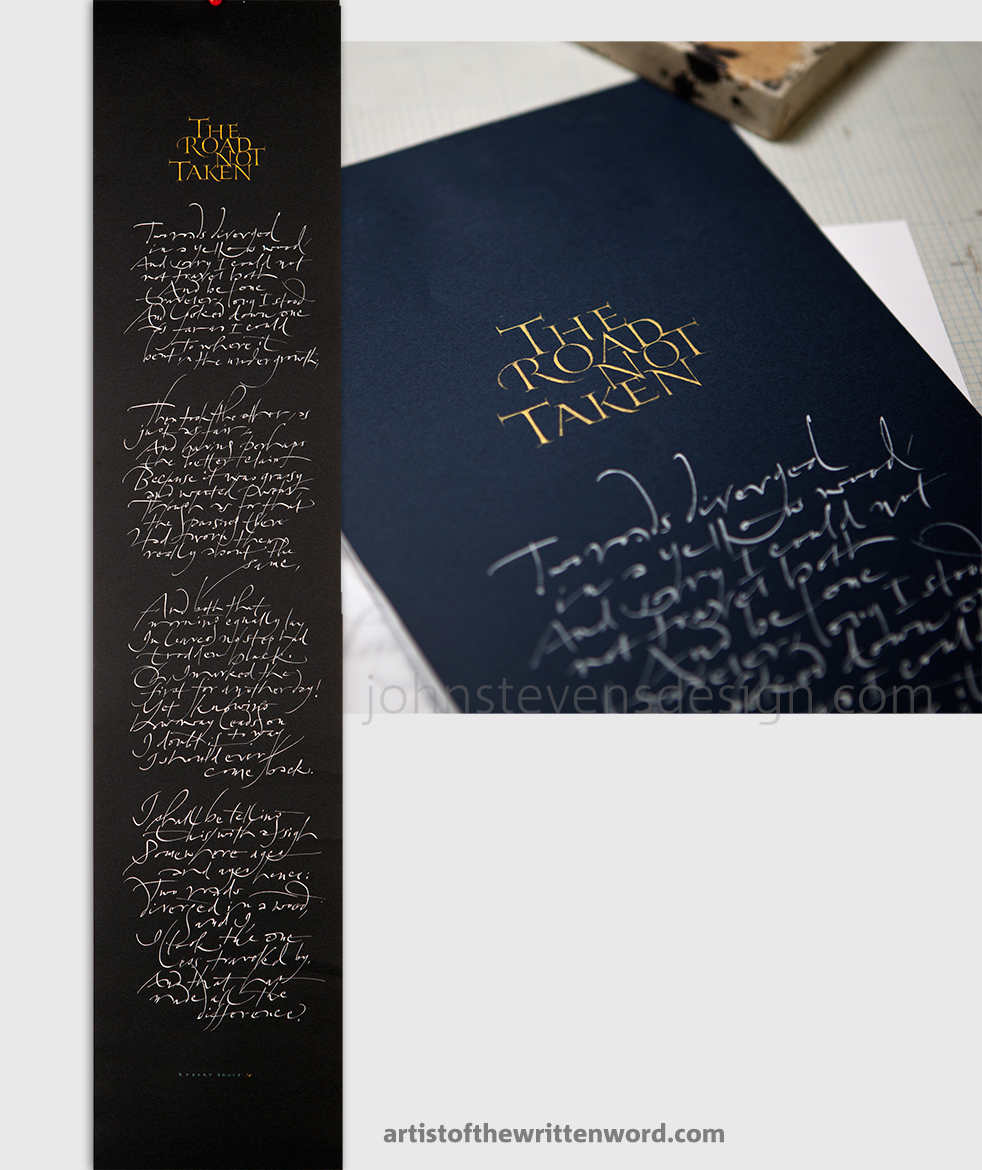 THE
ROAD
NOT
TAKEN
Two roads diverged
in a yellow wood
And sorry I could not
not travel both
And be one
traveler, long I stood
And looked down one
as far as I could
to where it
bent in the undergrowth;
Then took the other, as
just as fair,
And having perhaps
the better claim
Because it was grassy
and wanted wear,
Though as for that
the passing there
Had worn them
really about the
same,
And both that
morning equally lay
In leaves no step had
trodden black.
Oh, I marked the
first for another day!
Yet knowing
how way leads on
I doubt if to way
I should ever
come back.
I shall be telling
this with a sigh
Somewhere ages
and ages hence:
Two roads
diverged in a wood,
and I
I took the one
less traveled by,
And that has
made all the
difference.
ROBERT FROST
THE
ROAD
NOT
TAKEN
Two roads diverged
in a yellow wood
And sorry I could not
not travel both
And be one
traveler, long I stood
looked down on
I could
johnstevensdesign.com
artistofthewrittenword.com